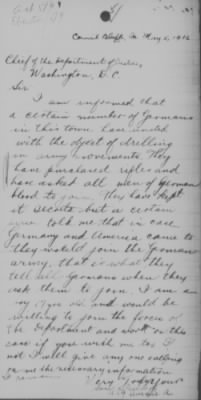 Council Bluffs, Ia. May 6, 1916
Chief of the Department of Justice,
Washington, D.C.
Sir
I am informed that
a certain number of Germans
in this town, have united
with the object of drelling
in army movements. They
have purchased rifles and
have asked all men of German
blood to join, they have kept
it secrete but a certain
one told me that in case
Germany and America came to
they would join the German
army, that is what they
tell all Germans when they
ask them to join. I am a
and would be
willing to join the forces of
the Department and work on this
case if you wish me to. If
not I will give any one calling
on me the necessary information
I remain
Very Truly Yours